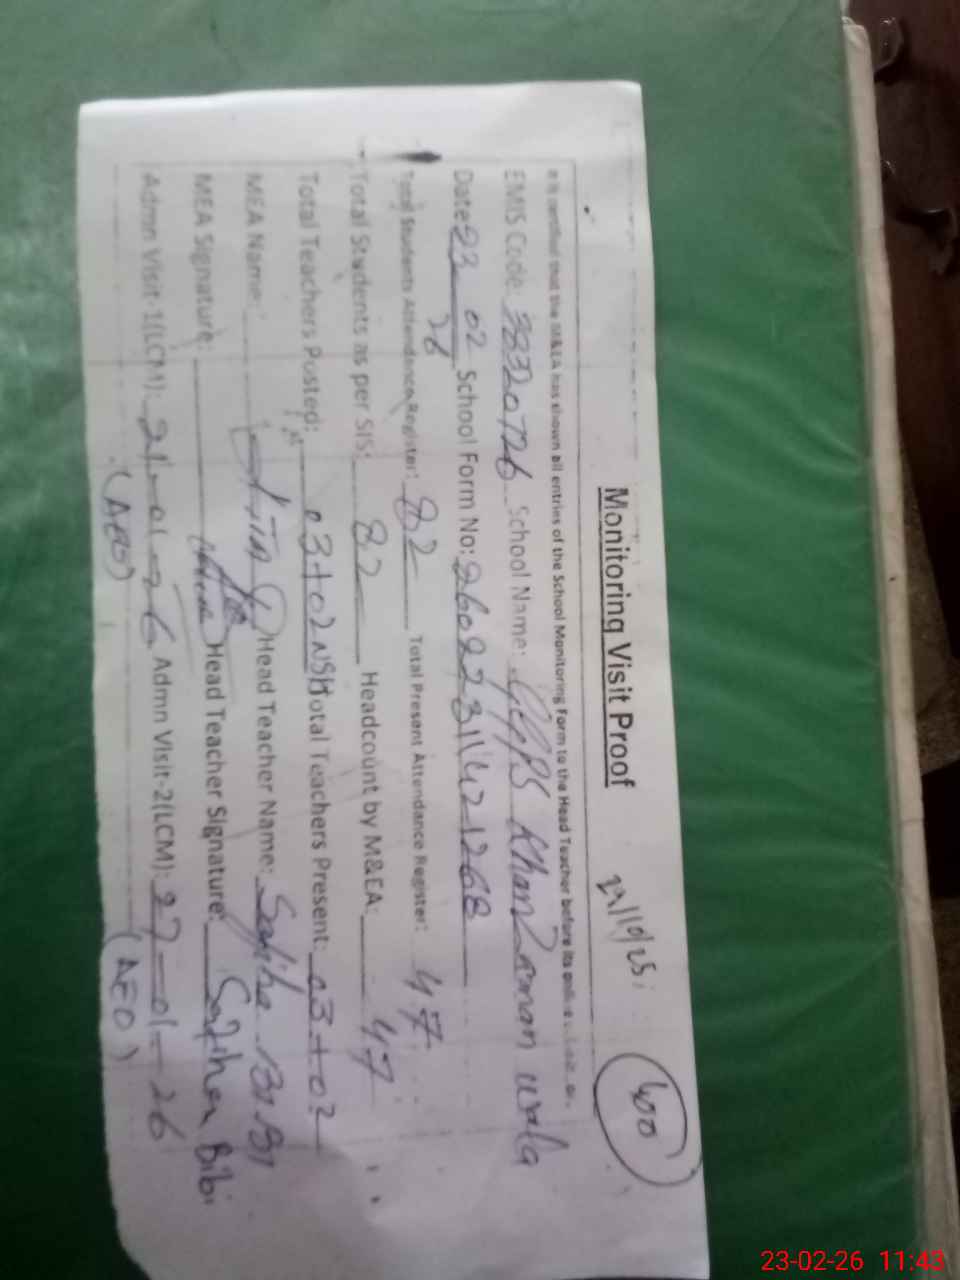 Monitoring Visit Proof
400
It is certified that the M&EA has shown all entries of the School Monitoring Form to the Head Teacher before its
EMIS Code 38320726 School Name: GGPS Khan Zaman wala
Date 23 02 26 School Form No: 26022311421268
Total Students Attendance Register: 82 Total Present Attendance Register: 47
Total Students as per SIS: 82 Headcount by M&EA: 47
Total Teachers Posted: 03+02 NSB Total Teachers Present: 03+02
MEA Name: Head Teacher Name: Saliha Bibi
MEA Signature: Head Teacher Signature: Bibi
Admn Visit-1(LCM): 21-01-26 Admn Visit-2(LCM): 27-01-26
(AEO) (AEO)
23-02-26 11:43